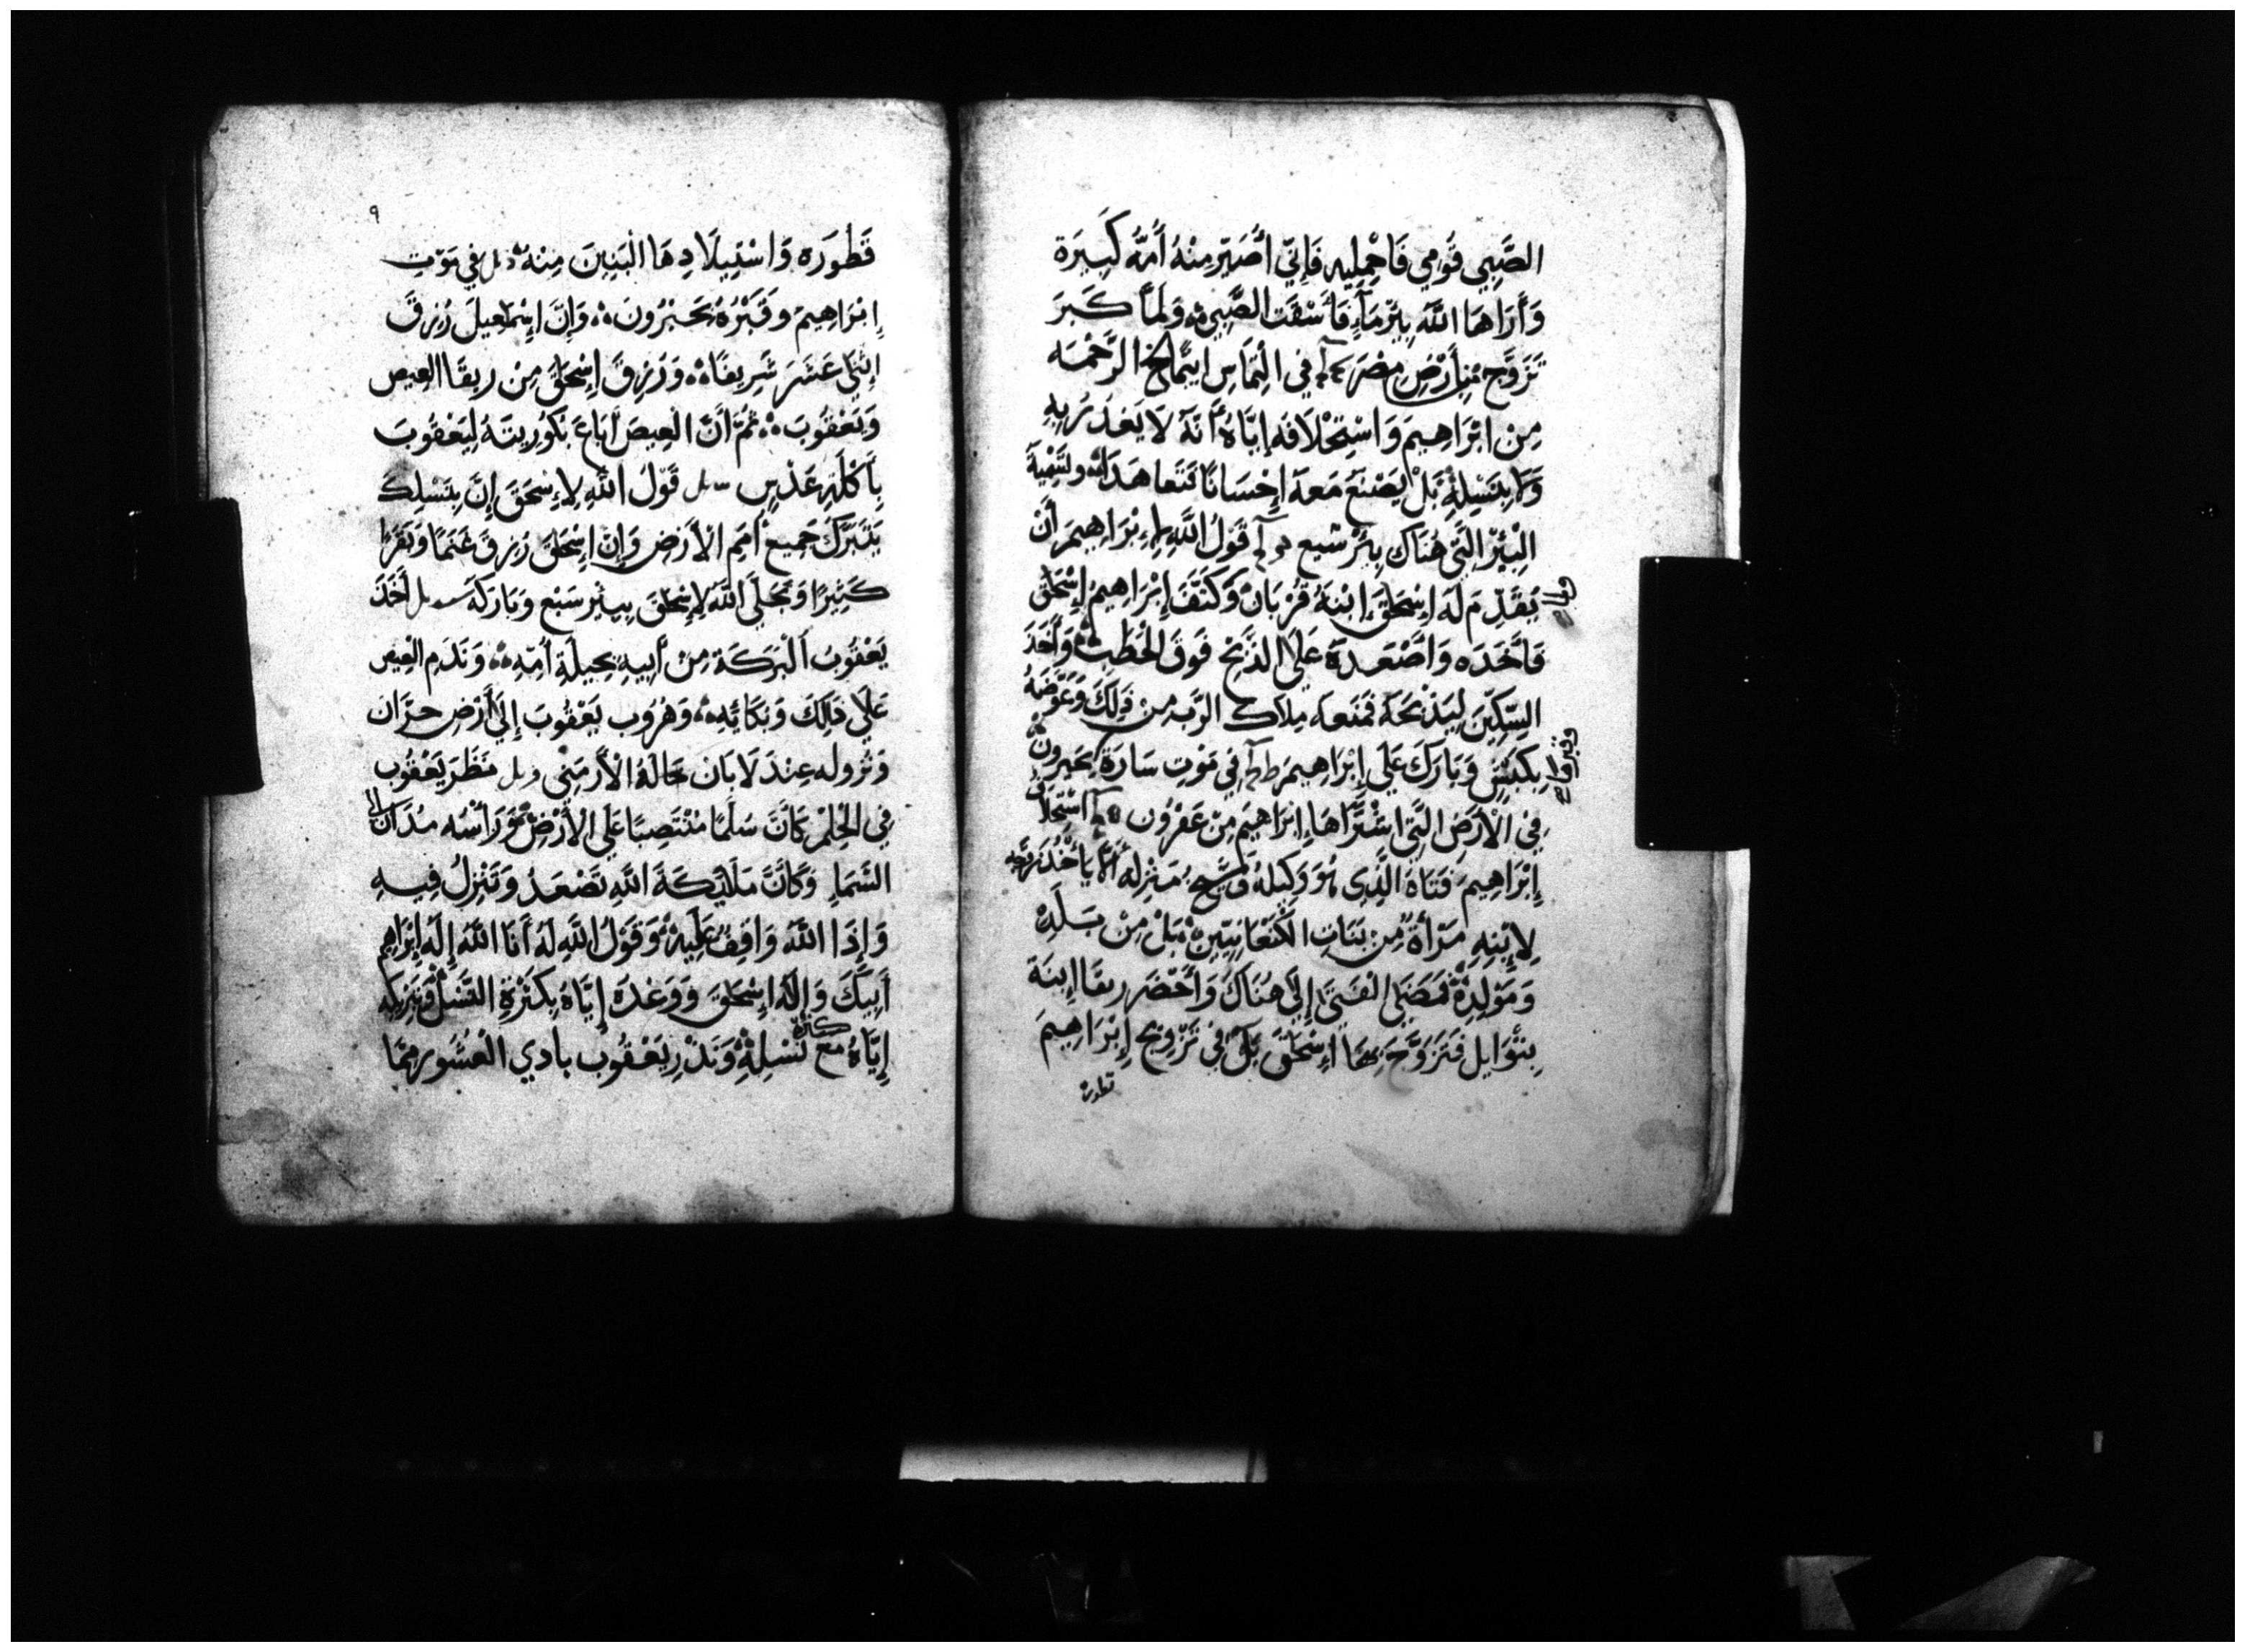 الصَّبِي قُومِي فَاحْمِلِيه فَإِنِّي أُصَيِّر مِنْهُ أُمَّةً كَبِيرَة
وَأَرَاهَا اللَّه بِيْرَ مَآءٍ فَأَسْقَتِ الصَّبِي وَلَمَّا كَبَرَ
تَزَوَّج مِن أَرْضِ مِصْرَ في الْتِمَاسِ ابيمالخ الرَّحْمَه
مِن ابْرَاهِيمَ وَاسْتِحْلَافَه إِيَّاهُ أَنَّه لَا يَغْدُرُ بِهِ
وَلَا بِنَسْلِهِ بَلْ يَصْنَعَ مَعَهُ إِحْسَانًا فَتَعَاهَدَا ولتَسْمِيَة
الْبِيْرِ الَّتِي هُنَاكَ بِيْرَ شبع قَوْلُ اللَّهِ لِإِبْرَاهِيمَ أَنْ
يُقَدِّم لَه اِسْحَقَ ابْنَهُ قُرْبَانْ وَكَتَّفَ إِبْرَاهِيمُ إِسْحَقَ
فَأَخَدَه وَأَصْعَدَهُ عَلَى الذَّبْحِ فَوْقَ الحَطَبْ وَأَخَذَ
السِّكِّينَ لِيَذْبَحَهُ فَمَنَعَه مِلَاك الرَّب مِن ذَلِكَ وَعَوَّضَهُ
بِكَبْشٍ وَبَارَكَ عَلَى إِبْرَاهِيمَ في مَوْتِ سَارَةَ بحَبرون
فِي الْأَرْضِ الَّتِي اشْتَرَاهَا إِبْرَاهِيمُ مِنْ عَفْرُون اسْتِحْلَاف
إِبْرَاهِيمَ فَتَاهُ الَّذِي هُوَ وَكِيلهُ مَنْزِله أَلَّا يَأْخُذ زَوْجَه
لِابْنِهِ مَرْأَةً مِن بَنَاتِ الْكَنْعَانِيِّينَ بَلْ مِنْ بَلَدِهْ
وَمَوْلِدِهْ فَمَضَى الْفَتَى إِلَى هُنَاكَ وَأَحْضَر ربقَا ابنَة
بتْوَايل فَتَزَوَّجَ بِهَا اِسْحَقَ في تَزْوِيج إِبْرَاهِيمَ
قطوره
٩
قَطُورَه وَاسْتِيلَادِهَا الْبَنِينَ مِنْهُ في مَوْت
اِبْرَاهِيم وَقَبْرُهُ بحَبْرُون وَإِنَّ إِسْمَاعِيلَ رُزِقَ
اثْنَى عَشَرَ شَرِيفًا وَرُزِقَ إِسْحَقَ مِنْ ربقَا العِيص
وَيَعْقُوبَ ثُمَّ أَنَّ الْعِيصَ أَبَاعَ بَكُورِيتَهُ لِيَعْقُوبَ
بِأَكْلَةِ عَدْسٍ قَوْلُ اللَّهِ لِإِسْحَقَ إِنَّ بِنَسْلِكَ
يَتَبَرَّكُ جَمِيع أُمَمِ الْأَرْضِ وَإِنَّ إِسْحَقَ رُزِقَ غَنَمًا وَبَقَرًا
كَثِيرًا وَتَجَلَّى اللَّه لِإِسْحَقَ بِبِيْرِ سَبْع وَبَارَكَهُ أَخَذَ
يَعْقُوبُ الْبَرَكَة مِنْ أَبِيهِ بِحِيلَةِ أُمِّهِ وَنَدَمِ الْعِيص
عَلَى ذَلِكَ وَبُكَائِهِ وَهُرُوب يَعْقُوبَ إِلَى أَرْضِ حَرَّان
وَنُزُوله عِنْدَ لَابَان خَالَهُ الْأَرْمَنِي نَظَرَ يَعْقُوب
فِي الْحُلْمْ كَأَنَّ سُلَّمًا مُنْتَصِبًا عَلَى الْأَرْضِ وَرَأْسُه مُدَان الى
السَّمَاءِ وَكَأَنَّ مَلَايِكَةَ اللَّهِ تَصْعَدُ وَتَنْزِلُ فِيهِ
وَإِذَا اللَّهُ وَاقِفٌ عَلَيْهْ وَقَوْلُ اللَّهِ لَهُ أَنَا اللَّهُ إِلَهُ إِبْرَاهِيم
أَبِيكَ وَإِلَهُ إِسْحَقَ وَوَعْدَهُ إِيَّاهُ بِكَثْرَةِ النَّسْلْ وَتَبْرِيكِه
إِيَّاهُ مَعَ كثرة نَسْلِهْ وَنَذْرِ يَعْقُوب بادي الْعُشُور مِمَّا